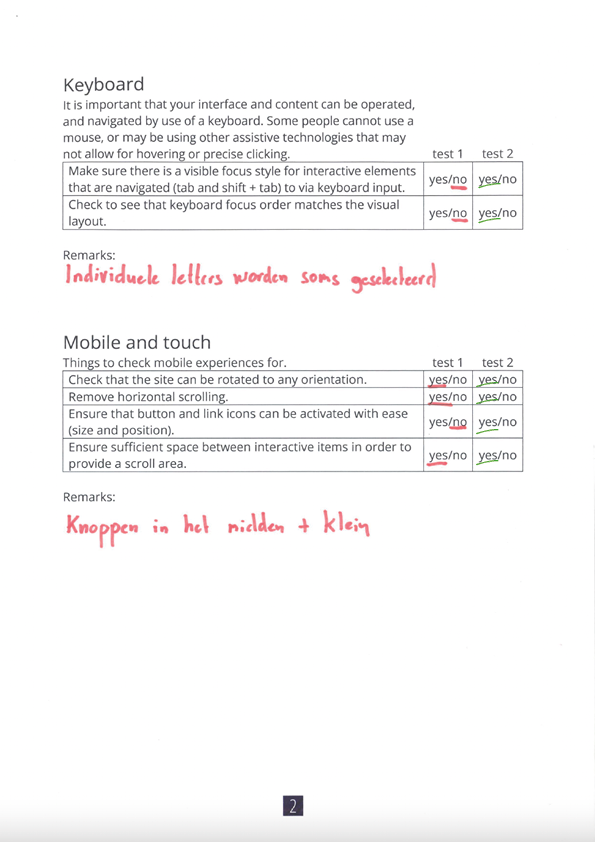 Keyboard
It is important that your interface and content can be operated,
and navigated by use of a keyboard. Some people cannot use a
mouse, or may be using other assistive technologies that may
not allow for hovering or precise clicking. test 1 test 2
Make sure there is a visible focus style for interactive elements
that are navigated (tab and shift + tab) to via keyboard input. yes/no yes/no
Check to see that keyboard focus order matches the visual
layout. yes/no yes/no
Remarks:
Individuele letters worden soms geselecteerd
Mobile and touch
Things to check mobile experiences for. test 1 test 2
Check that the site can be rotated to any orientation. yes/no yes/no
Remove horizontal scrolling. yes/no yes/no
Ensure that button and link icons can be activated with ease
(size and position). yes/no yes/no
Ensure sufficient space between interactive items in order to
provide a scroll area. yes/no yes/no
Remarks:
Knoppen in het midden + klein
2